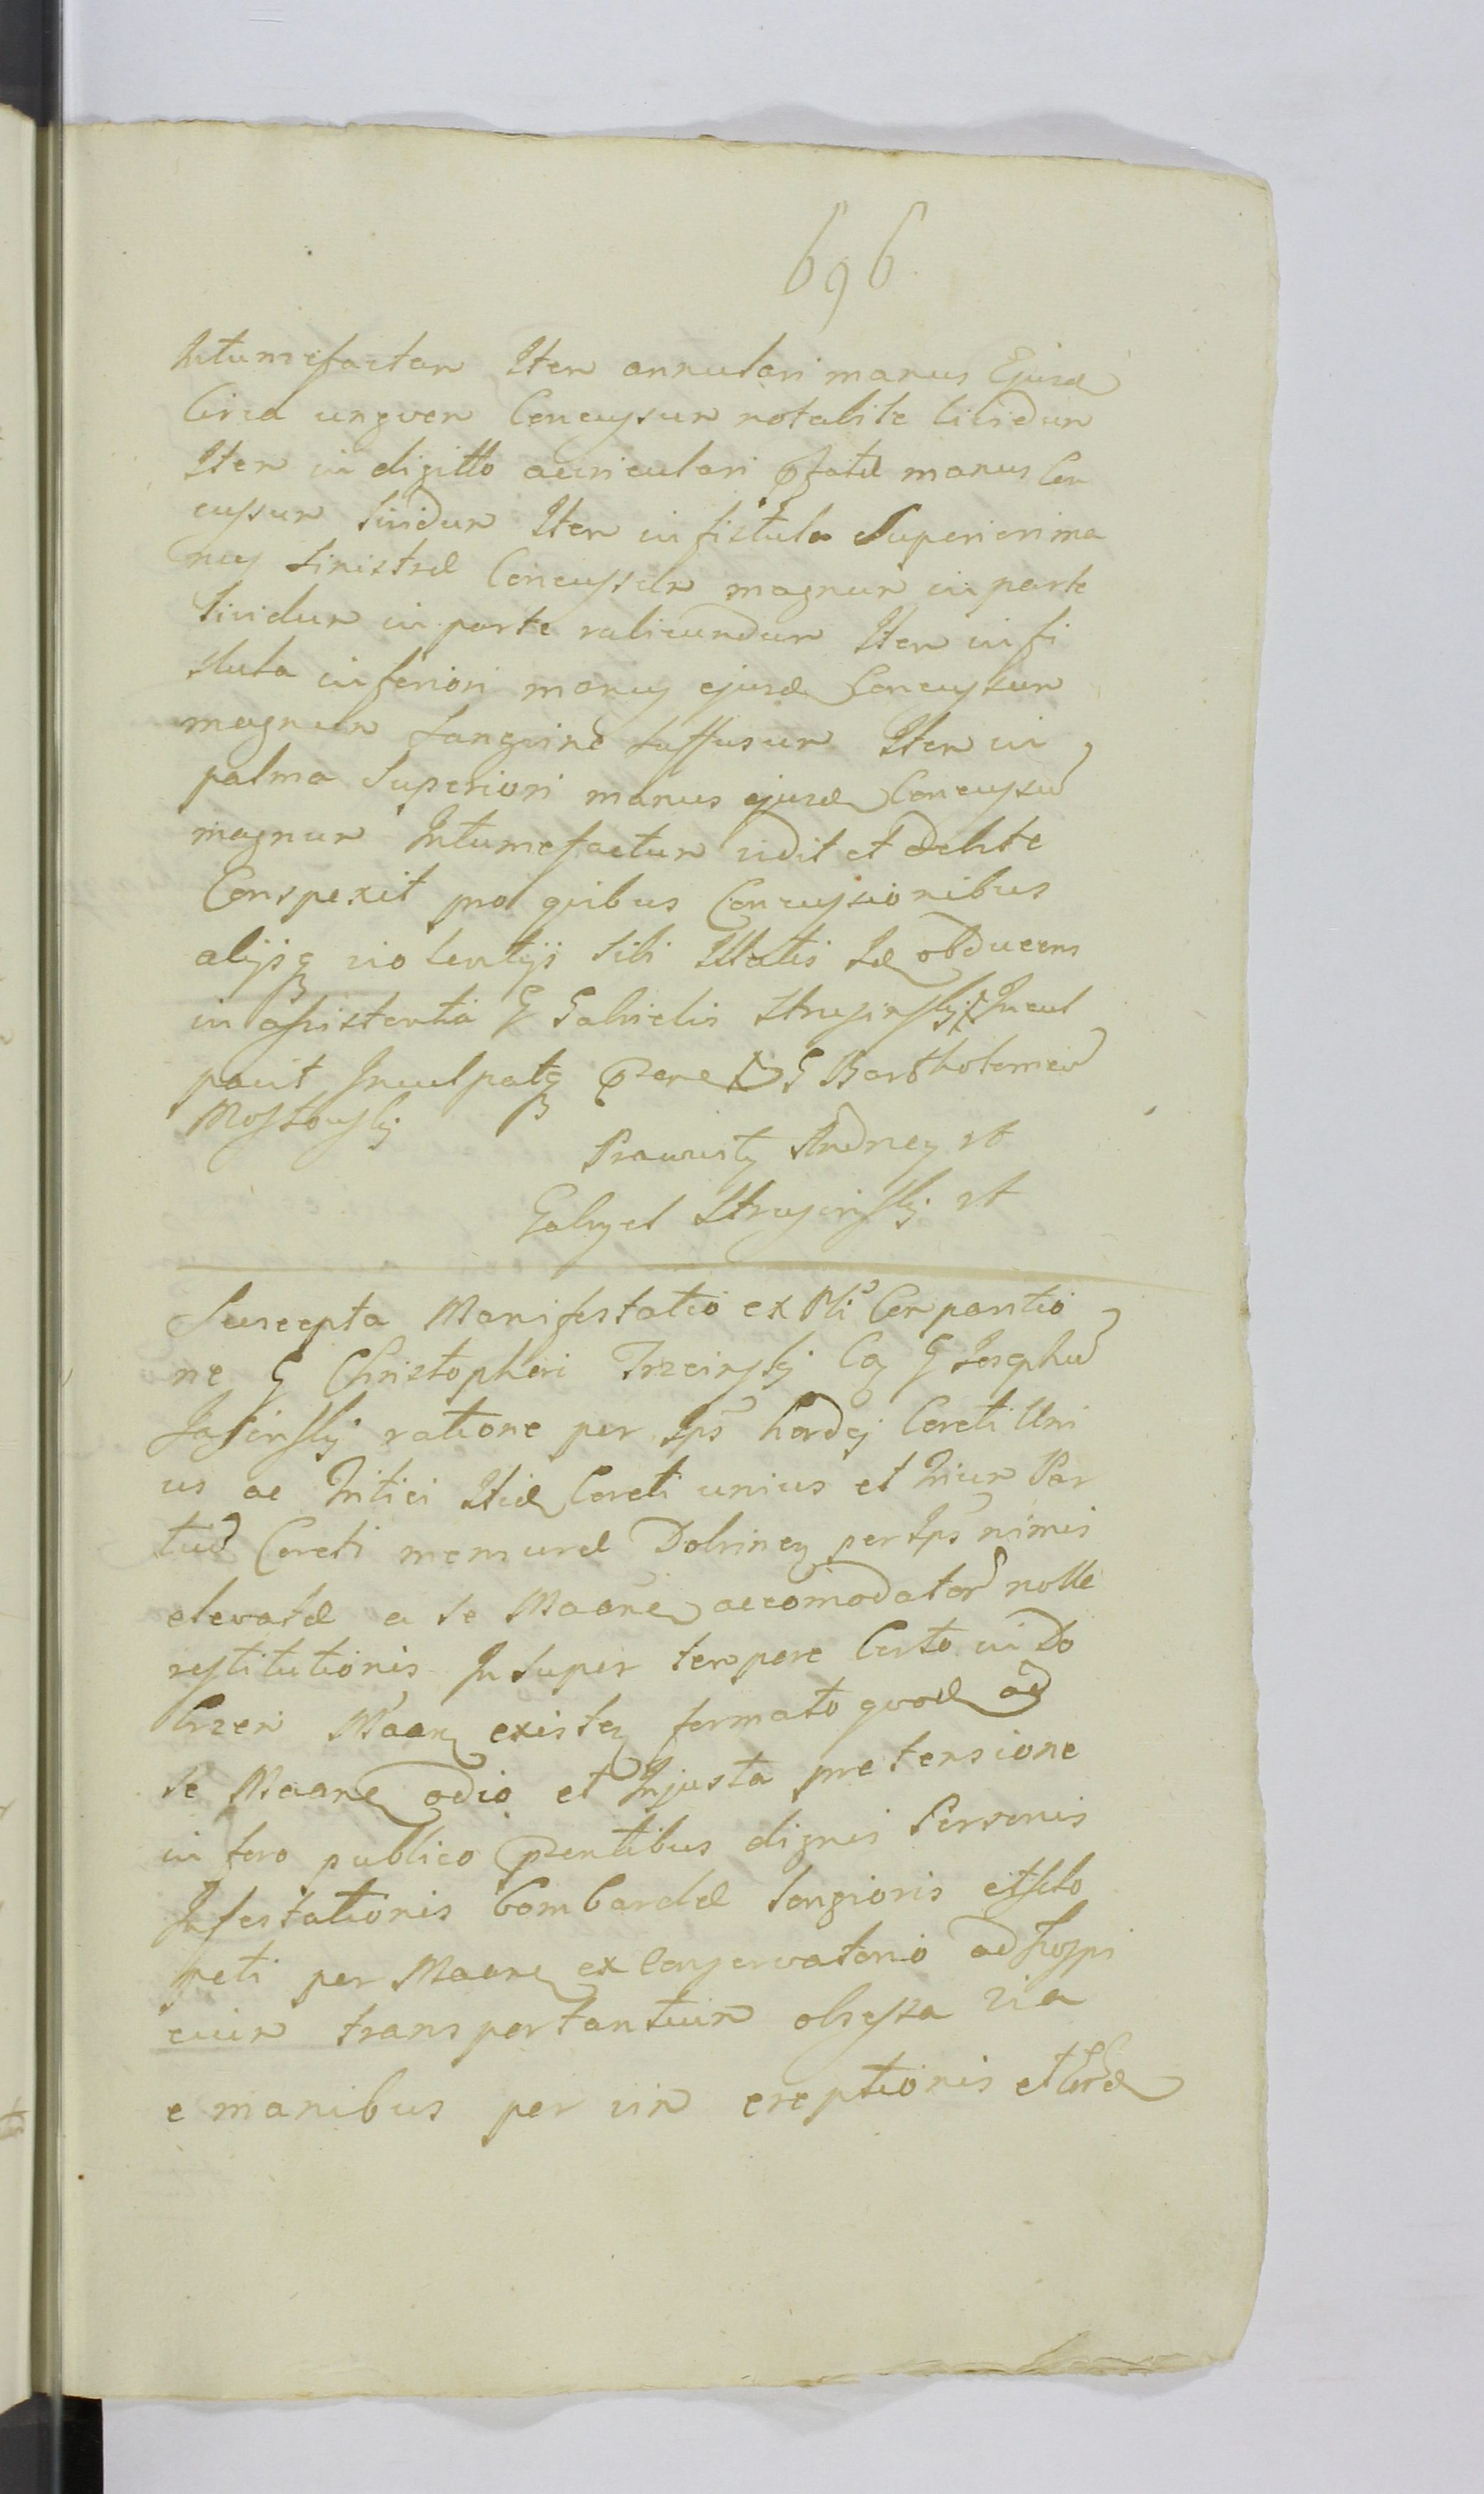 696.
Intumefactam Item annulari manus Ejusd
Circa unguem Concussum notabilte lividum
Item in digitto auriculari pfatæ manus Con
cussum lividum Item in fistula Superiori ma
nus sinistræ Concussum magnum in parte
lividum in parte rubicundum Item in fi
stula inferiori manus ejusd Concussum
magnum Sanguine suffusum Item in
palma Superiori manus ejusd Concussu
magnum Intumefactum vidit et
Conspexit pro quibus Concussionibus
alijsq violentijs sibi Illatis Id obducens
in assistentia G Gabrielis Strusinskij Incul
pavit Inculpatq G Bartholomeu
Mostowskij
Prawusty Andrzey
Gabryel Strusinskij
Suscepta Manifestatio ex Comparitio
ne G Christopheri Trzcinskij Ca G Josephu
Jasinskij ratione per Ips hordej Coreti Uni
us ac Tritici Itid Coreti unius et trium Par
tiu Coreti mensuræ Dobrinen per Ips nimis
elevatæ a se Maane accomodator nolle
restitutionis Insuper tempore Certo in Do
brzen Maan existen formato quod ad
se Maane odio et Injusta pretensione
in foro publico pntibus dignis Personis
Infestationis bombardæ longioris et sclo
peti per Maane ex Conservatorio ad hospi
cium transportantium obsessa via
e manibus per vim ereptionis et